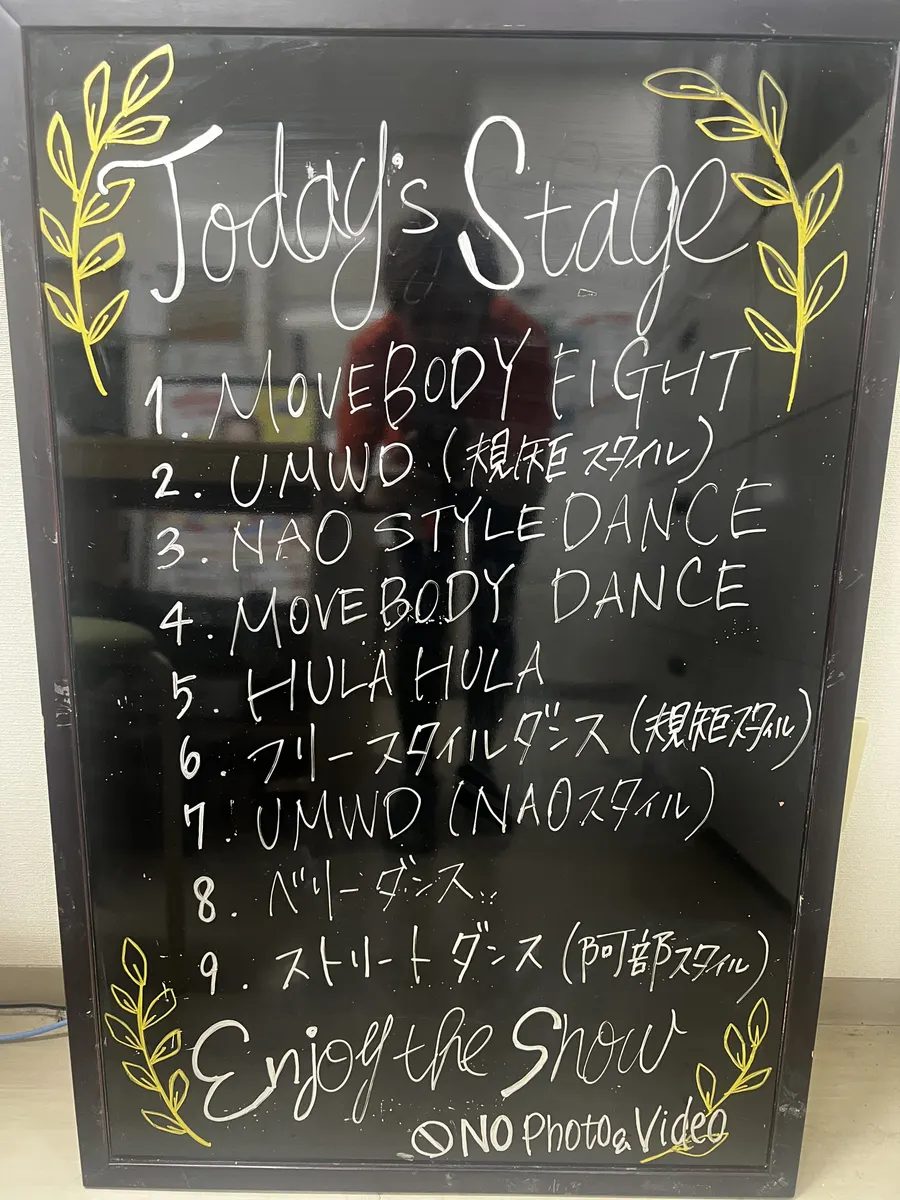 Today's Stage
1. MOVEBODY FIGHT
2. UMWD (規矩スタイル)
3. NAO STYLE DANCE
4. MOVEBODY DANCE
5. HULA HULA
6. フリースタイルダンス (規矩スタイル)
7. UMWD (NAOスタイル)
8. ベリーダンス
9. ストリートダンス (阿部スタイル)
Enjoy the Show
NO Photo & Video